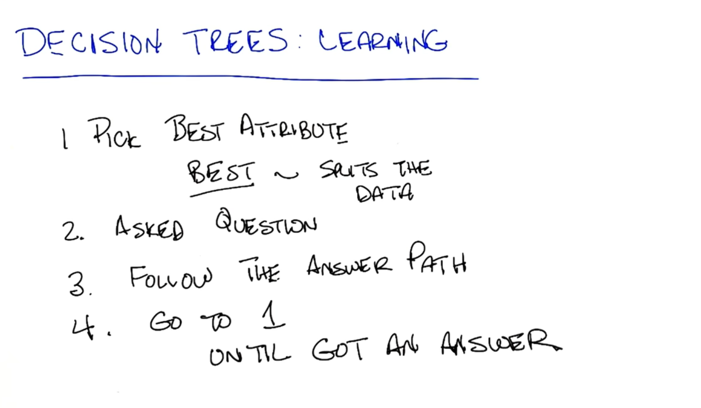 DECISION TREES: LEARNING
1 PICK BEST ATTRIBUTE
BEST ~ SPLITS THE
DATA
2. ASKED QUESTION
3. FOLLOW THE ANSWER PATH
4. GO TO 1
UNTIL GOT AN ANSWER